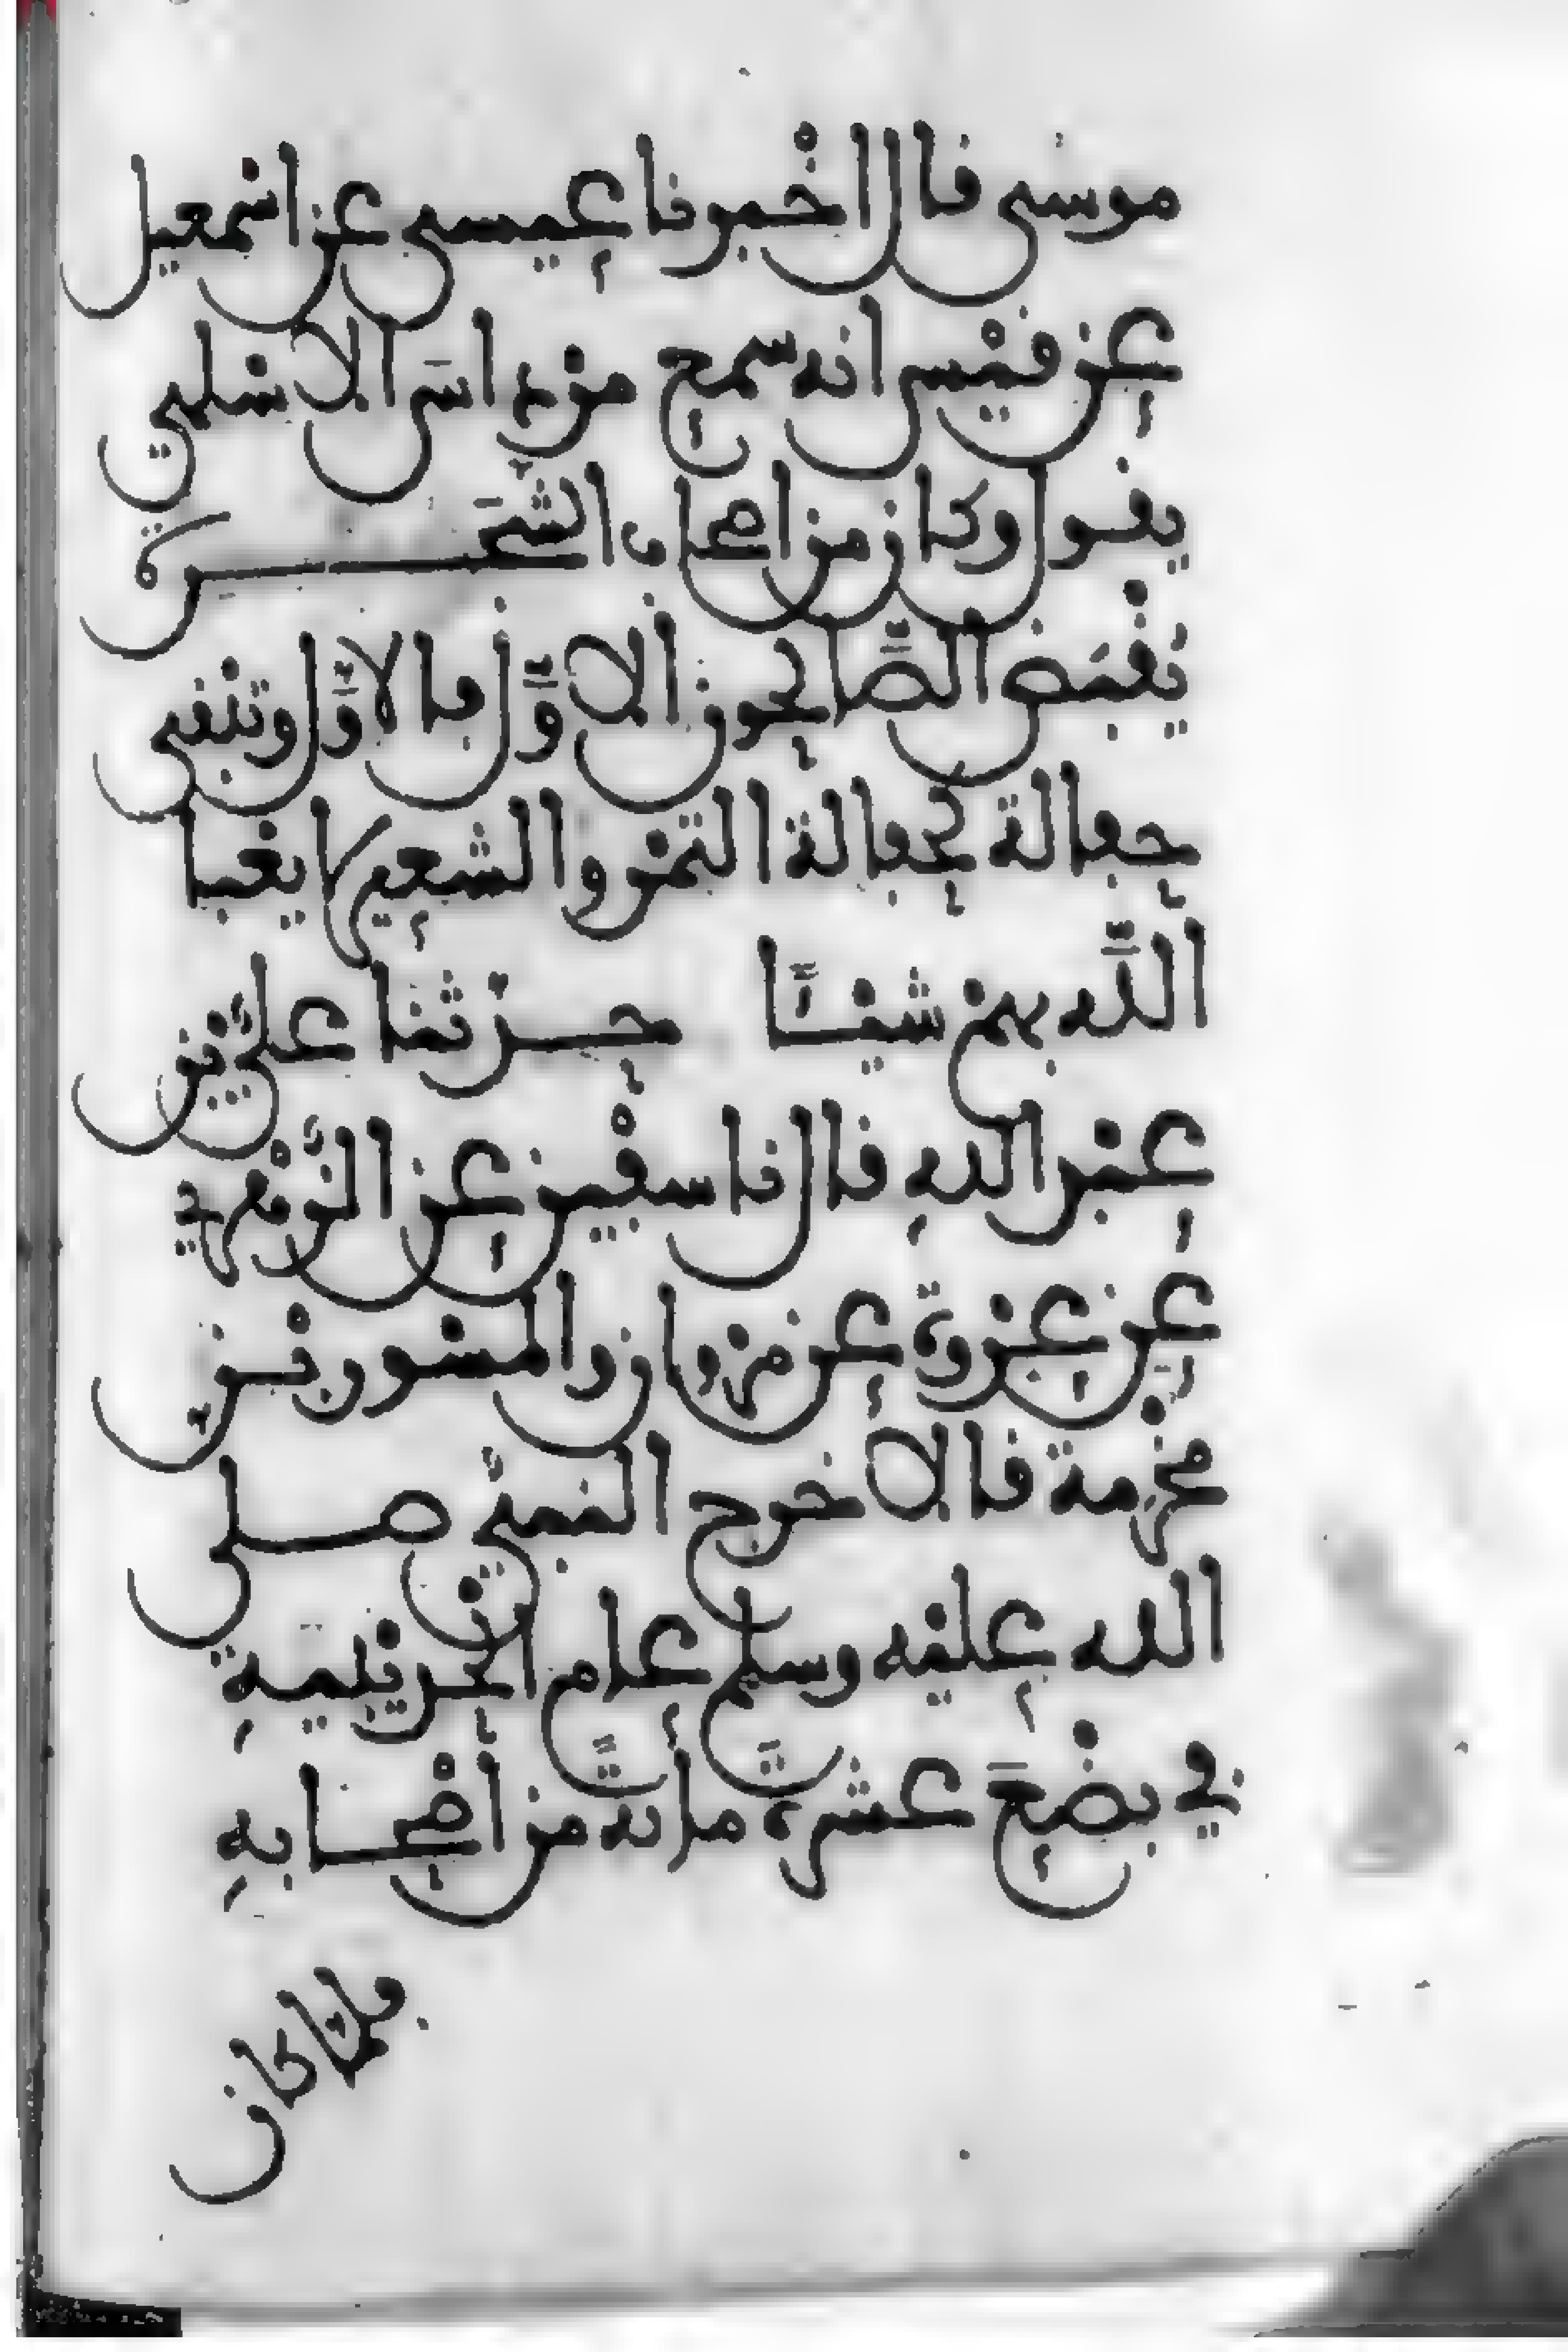 موسى قال اخْبرنا عيسى عن اسْمعيل
عن قيْس انه سمع مرْداسَ الاسْلمي
يقول وكان من اصحاب الشَّجَرة
يُقْبَض الصَّالحون الاوَّل فالاوَّل وتبْقى
حفالة كحفالة التمْر والشعير لا يعْبا
اللَّه بهمْ شيْـًٔا حدثنا عليُّ بن
عبْد الله قال نا سفْين عن الزُّهْري
عن عرْوة عن مرْوان والمسْور بْن
مخْرمة قالا خرج النبيُّ صلى
الله عليْه وسلم عام الحديْبيَةِ
في بضْعَ عشرةَ مائةً من أصْحابهِ
فلمَّا كان